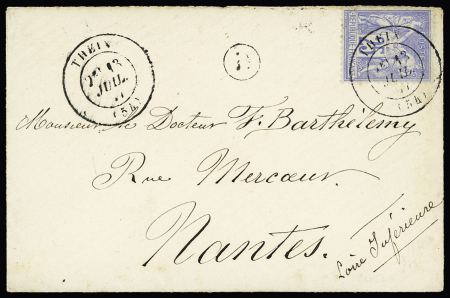 THEIX
13
JUIL.
77
(54)
RÉPUBLIQUE
THEIX
13
JUIL.
77
(54)
Monsieur le Docteur F. Barthélemy
Rue Mercœur
Nantes.
Loire Inférieure